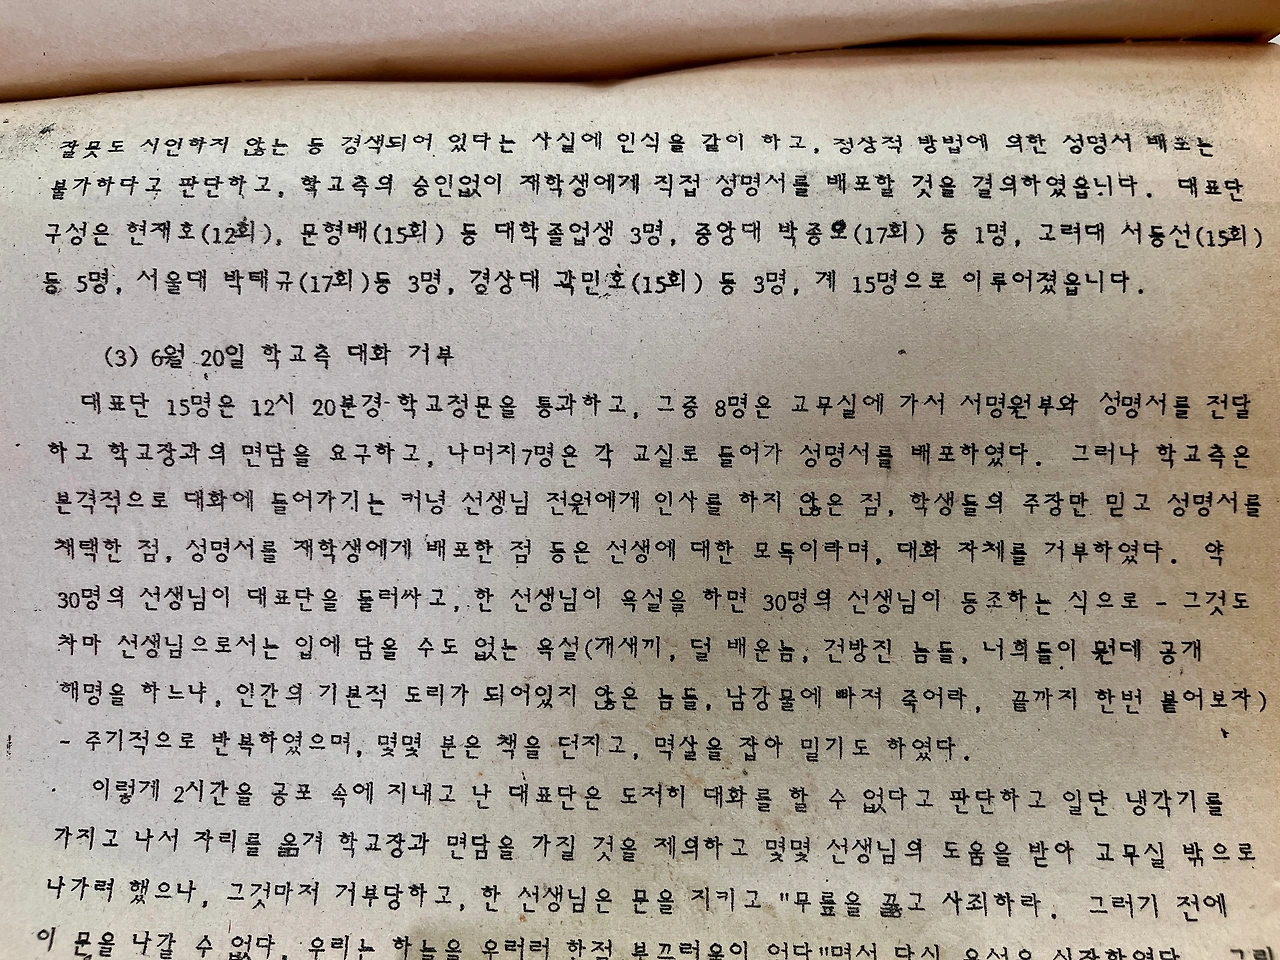 잘못도 시인하지 않는 등 경색되어 있다는 사실에 인식을 같이 하고, 정상적 방법에 의한 성명서 배포는
불가하다고 판단하고, 학교측의 승인없이 재학생에게 직접 성명서를 배포할 것을 결의하였읍니다. 대표단
구성은 현재호(12회), 문형배(15회) 등 대학졸업생 3명, 중앙대 박종호(17회) 등 1명, 고려대 서동선(15회)
등 5명, 서울대 박태규(17회)등 3명, 경상대 곽민호(15회) 등 3명, 계 15명으로 이루어졌읍니다.
(3) 6월 20일 학교측 대화 거부
대표단 15명은 12시 20분경 학교정문을 통과하고, 그중 8명은 교무실에 가서 서명원부와 성명서를 전달
하고 학교장과의 면담을 요구하고, 나머지7명은 각 교실로 들어가 성명서를 배포하였다. 그러나 학교측은
본격적으로 대화에 들어가기는 커녕 선생님 전원에게 인사를 하지 않은 점, 학생들의 주장만 믿고 성명서를
채택한 점, 성명서를 재학생에게 배포한 점 등은 선생에 대한 모독이라며, 대화 자체를 거부하였다. 약
30명의 선생님이 대표단을 둘러싸고, 한 선생님이 욕설을 하면 30명의 선생님이 동조하는 식으로 - 그것도
차마 선생님으로서는 입에 담을 수도 없는 욕설(개새끼, 덜 배운놈, 건방진 놈들, 너희들이 뭔데 공개
해명을 하느냐, 인간의 기본적 도리가 되어있지 않은 놈들, 남강물에 빠져 죽어라, 끝까지 한번 붙어보자)
- 주기적으로 반복하였으며, 몇몇 분은 책을 던지고, 멱살을 잡아 밀기도 하였다.
이렇게 2시간을 공포 속에 지내고 난 대표단은 도저히 대화를 할 수 없다고 판단하고 일단 냉각기를
가지고 나서 자리를 옮겨 학교장과 면담을 가질 것을 제의하고 몇몇 선생님의 도움을 받아 교무실 밖으로
나가려 했으나, 그것마저 거부당하고, 한 선생님은 문을 지키고 "무릎을 꿇고 사죄하라. 그러기 전에
이 문을 나갈 수 없다. 우리는 하늘을 우러러 한점 부끄러움이 없다"면서 다시 욕설을 시작하였다.